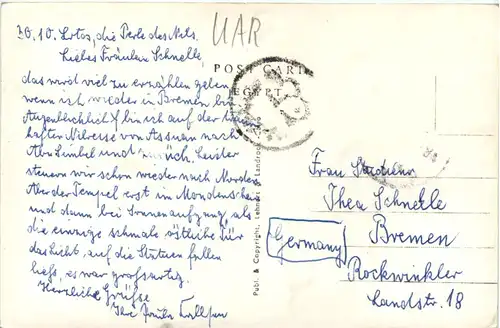 UAR
POST CARD
EGYPT
30.10. die Perle des Nils.
Liebes Fräulein Schnelle,
das wird viel zu erzählen geben
wenn ich wieder in Bremen bin
Augenblicklich bin ich auf der traum
haften Nilreise von Assuan nach
Abu Simbel und zurück. Leider
steuern wir schon wieder nach Norden
Aber der Tempel erst im Mondenschein
und dann bei Sonnenaufgang, als
die einzige schmale östliche Tür
das Licht, auf die Statuen fallen
ließ, es war großartig.
Herzliche Grüße
Ihre
Publ. & Copyright, Lehnert & Landrock
Frau
Thea Schnelle
Germany
Bremen
Rockwinkler
Landstr. 18